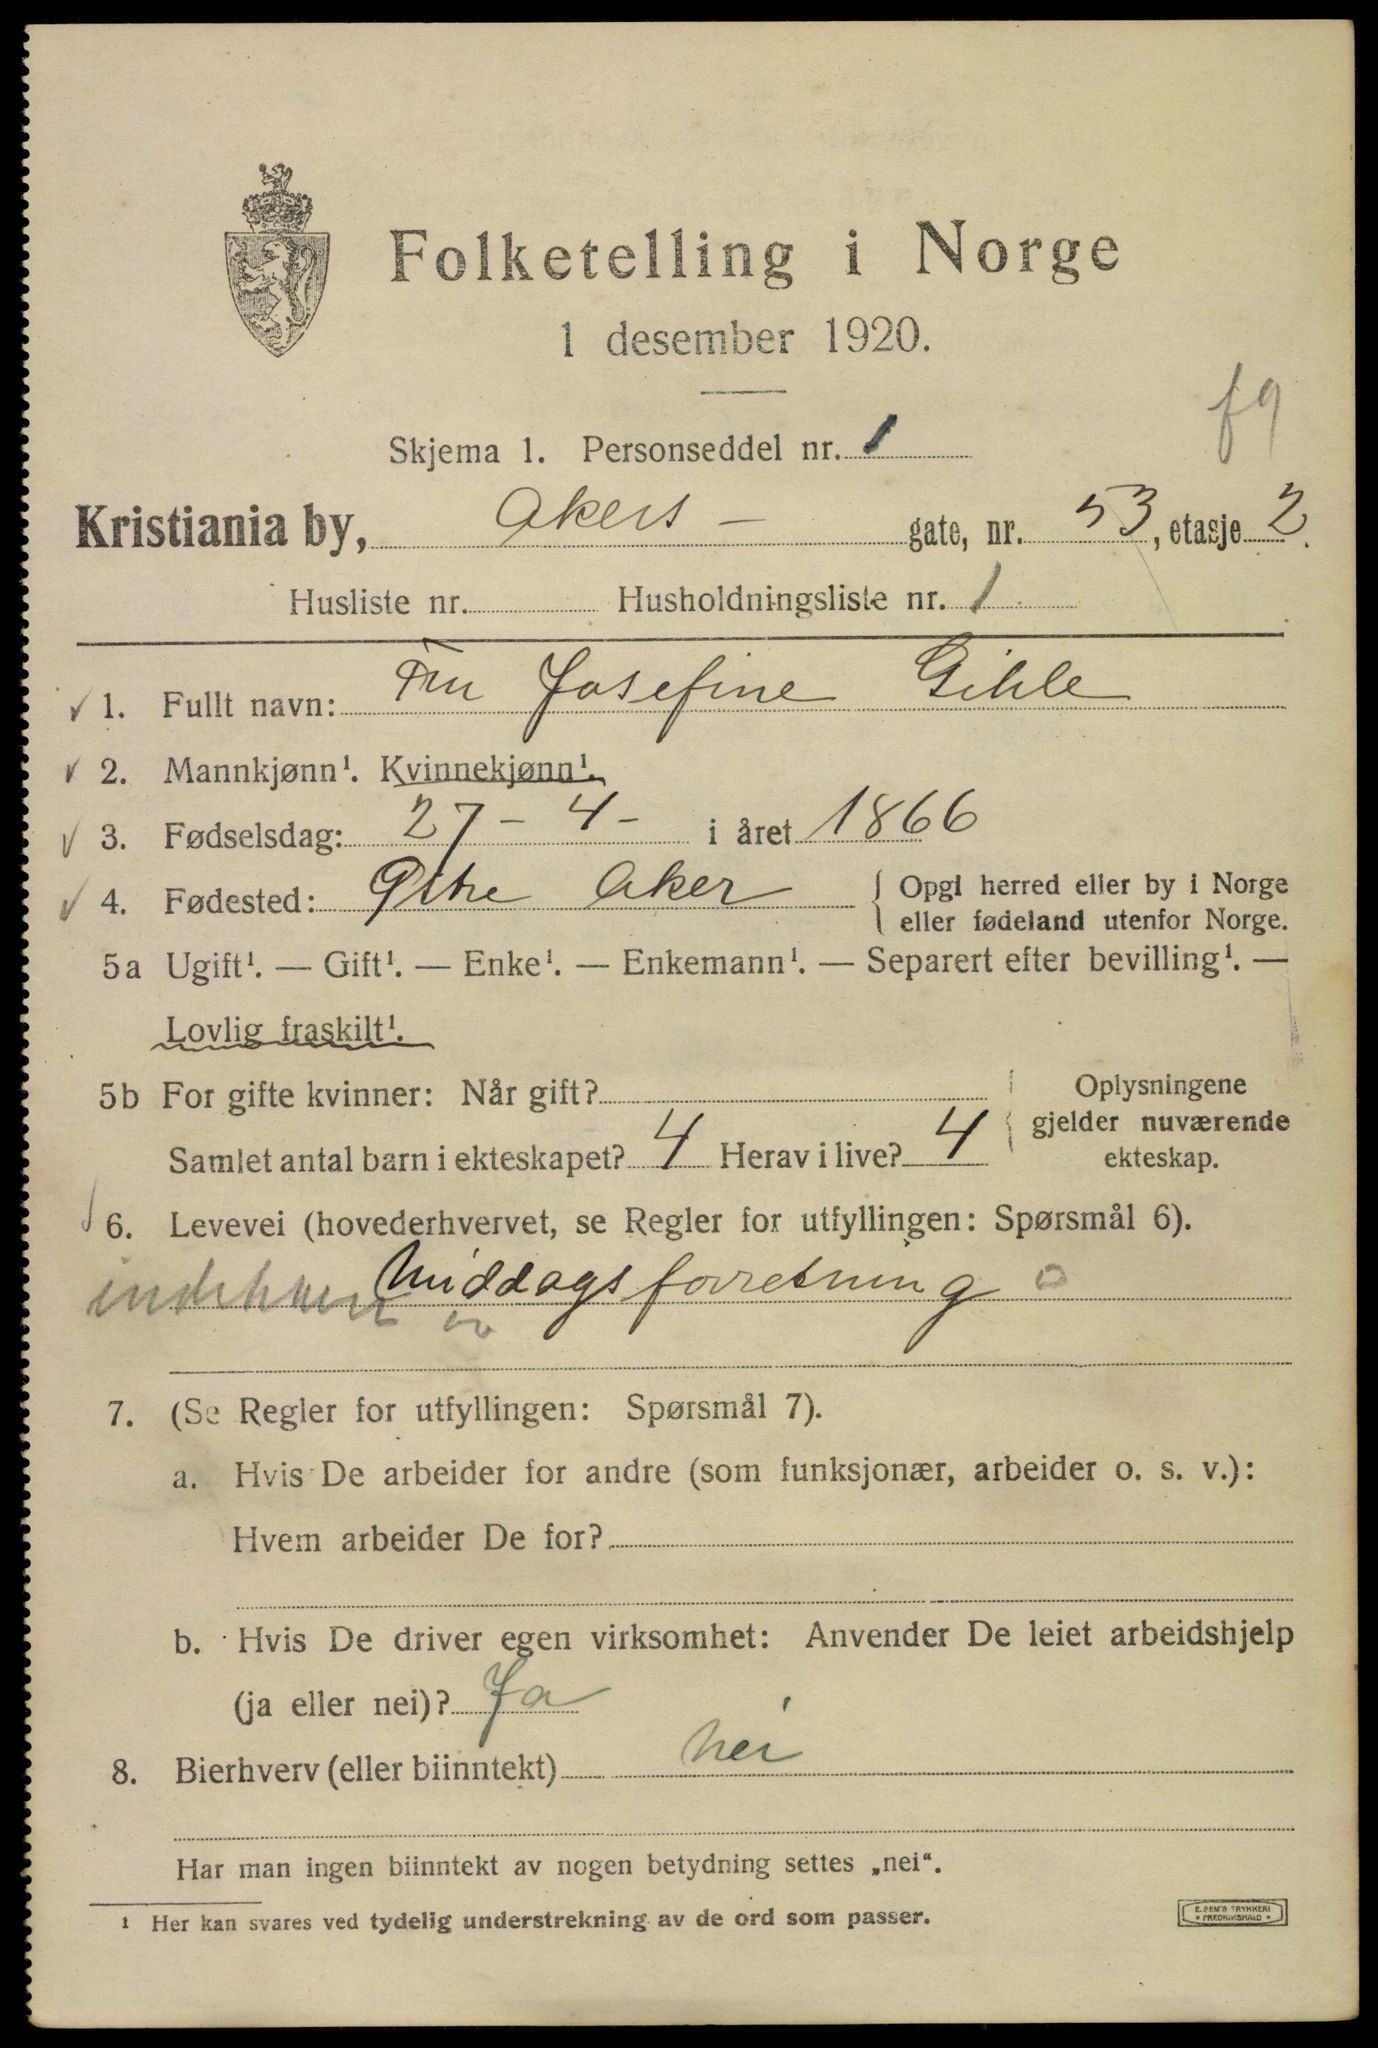 Folketelling i Norge
1 desember 1920.
f9
Skjema 1. Personseddel nr. 1
Kristiania by, Akers - gate, nr. 53, etasje 2.
Husliste nr. Husholdningsliste nr. 1
1. Fullt navn: Fru Josefine Gihle
2. Mannkjønn¹. Kvinnekjønn¹.
3. Fødselsdag: 27 - 4 - i året 1866
4. Fødested: Østre Aker Opgi herred eller by i Norge
eller fødeland utenfor Norge.
5a Ugift¹. — Gift¹. — Enke¹. — Enkemann¹. — Separert efter bevilling¹. —
Lovlig fraskilt¹.
5b For gifte kvinner: Når gift? Oplysningene
gjelder nuværende
Samlet antal barn i ekteskapet? 4 Herav i live? 4 ekteskap.
6. Levevei (hovederhvervet, se Regler for utfyllingen: Spørsmål 6).
Middagsforretning
7. (Se Regler for utfyllingen: Spørsmål 7).
a. Hvis De arbeider for andre (som funksjonær, arbeider o. s. v.):
Hvem arbeider De for?
b. Hvis De driver egen virksomhet: Anvender De leiet arbeidshjelp
(ja eller nei)? Ja
8. Bierhverv (eller biinntekt) nei
Har man ingen biinntekt av nogen betydning settes „nei“.
¹ Her kan svares ved tydelig understrekning av de ord som passer.
E. SEM'S TRYKKERI
• FREDRIKSHALD •